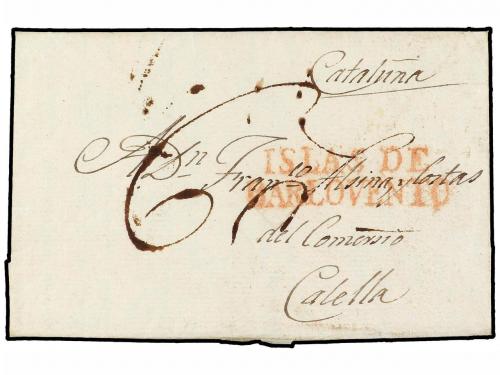 Cataluña
A Dn Franco Alsina y Costas
ISLAS DE
BARLOVENTO
del Comersio
Calella